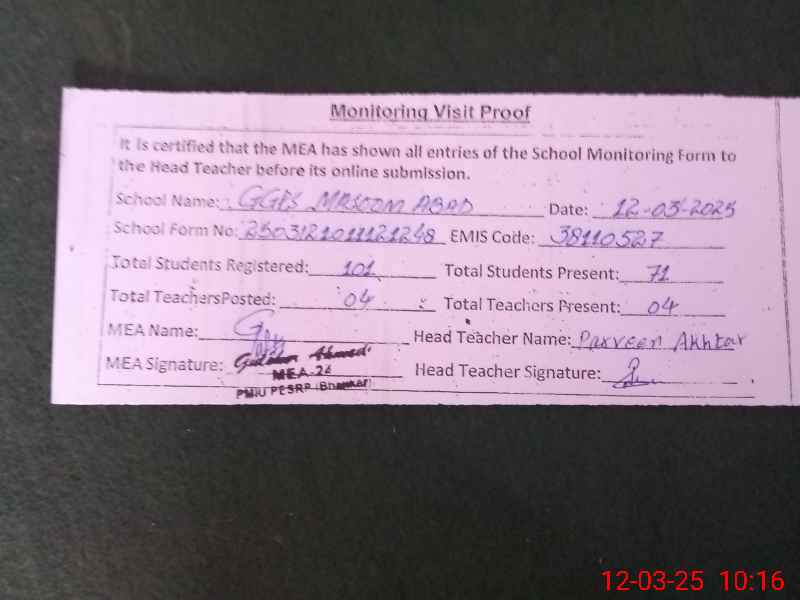 Monitoring Visit Proof
It is certified that the MEA has shown all entries of the School Monitoring Form to
the Head Teacher before its online submission.
School Name: GGPS MASOOM ABAD Date: 12-03-2025
School Form No: 2503121011121248 EMIS Code: 38110527
Total Students Registered: 101 Total Students Present: 71
Total TeachersPosted: 04 Total Teachers Present: 04
MEA Name: Head Teacher Name: Parveen Akhtar
MEA Signature: Ahmed Head Teacher Signature:
MEA-24
PMIU PESRP (Bhakkar)
12-03-25 10:16